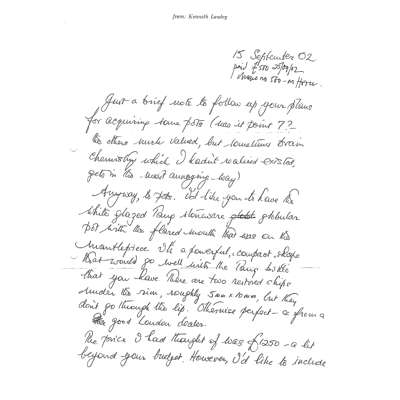 from: Kenneth Lowley
15 September 02
paid £500 25/09/02
cheque no 580 - m
Just a brief note to follow up your plans
for acquiring some pots. (was it point 7?-
the others much valued, but sometimes brain
chemistry which I hadn't realised existed,
gets in the most annoying way)
Anyway, to pots. I'd like you to have the
white glazed Tang stoneware globular
pot with the flared mouth that was on the
mantlepiece. It's a powerful, compact shape
that would go well with the Tang bottle
that you have. There are two restored chips
under the rim, roughly 5mm x 10mm, but they
don't go through the lip. Otherwise perfect - ex from a
good London dealer.
The price I had thought of was £1250 - a bit
beyond your budget. However, I'd like to include